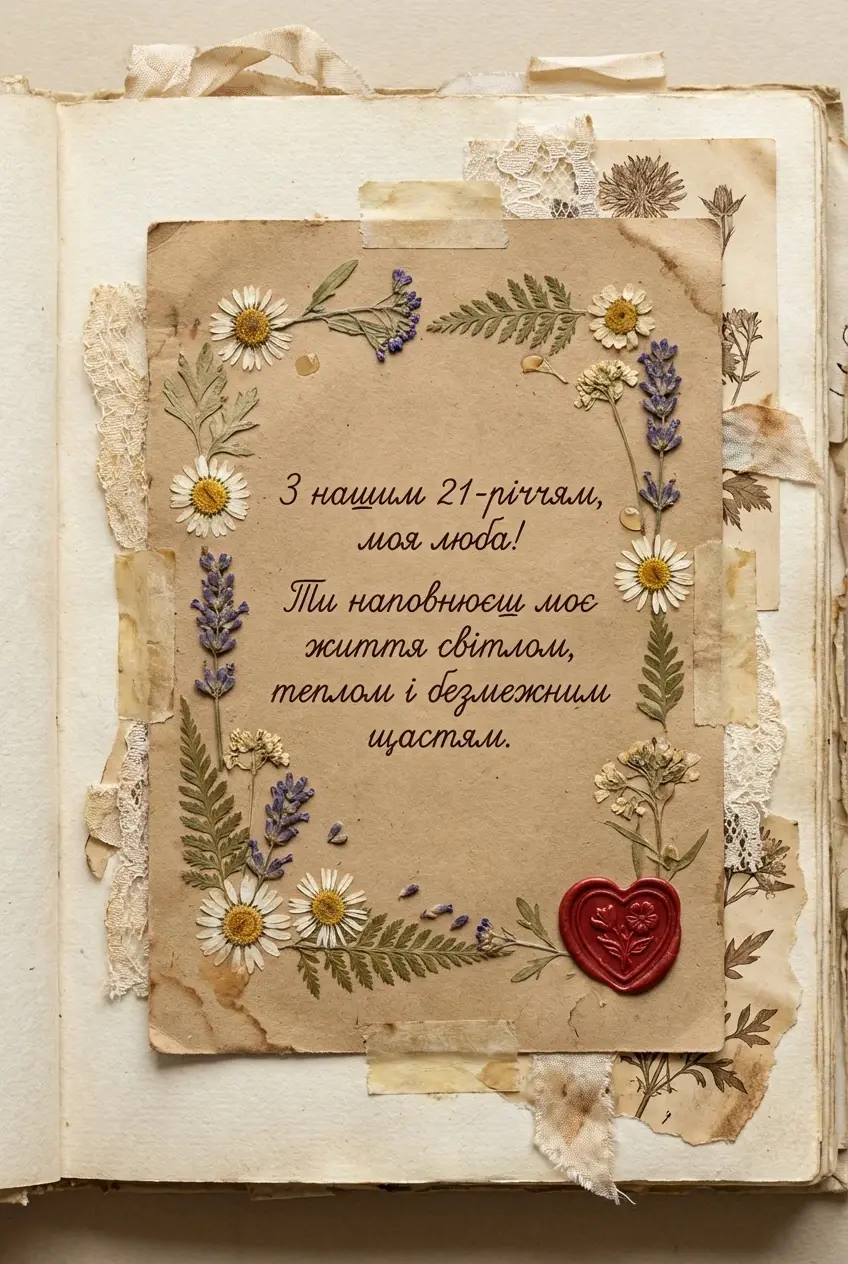 З нашим 21-річчям,
моя люба!
Ти наповнюєш моє
життя світлом,
теплом і безмежним
щастям.